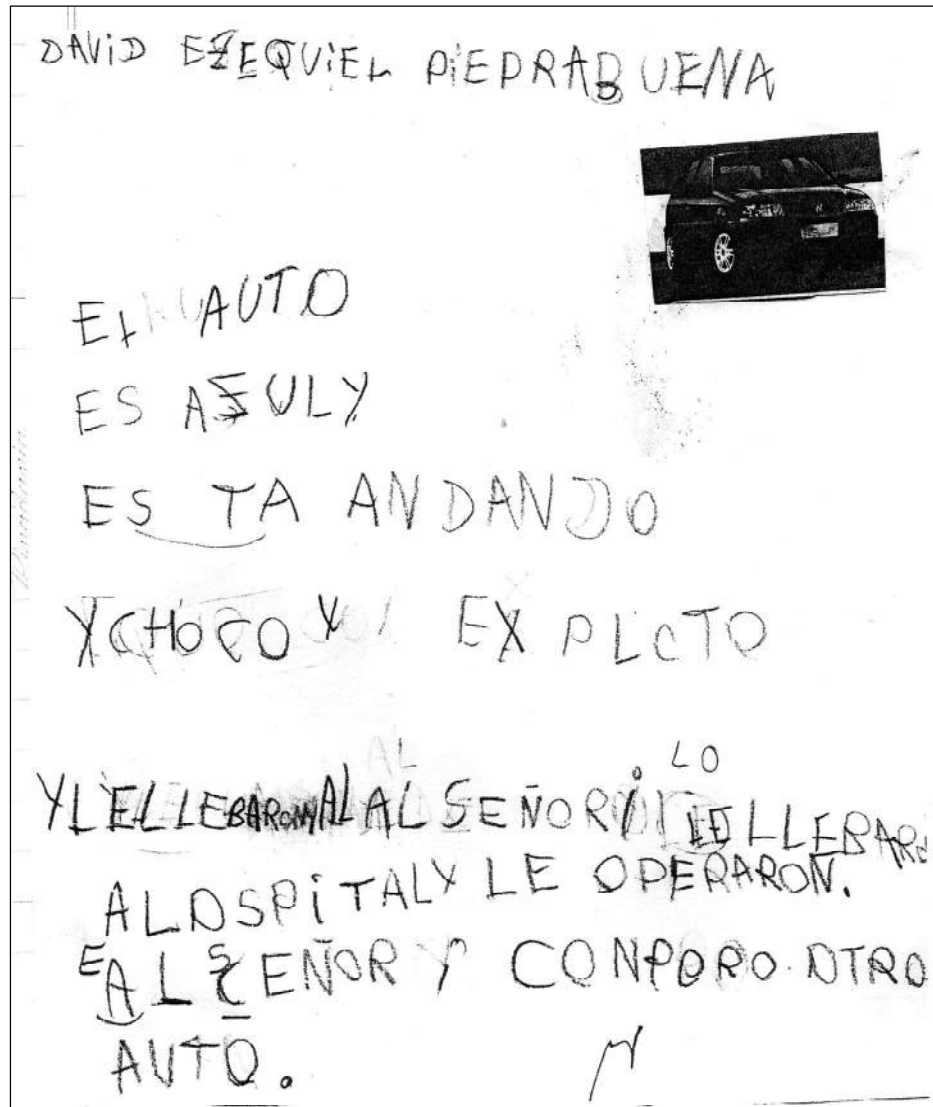 DAViD EZEQUiEL PiEDRABUENA
EL AUTO
ES AZULY
ES TA ANDANDO
YCHOCO Y EXPLOTO
AL LO
YLELLEBARON AL AL SEÑOR i LE LLEBARO
ALOSPiTALY LE OPERARON.
E S
AL CEÑOR Y CONPORO OTRO
AUTO.